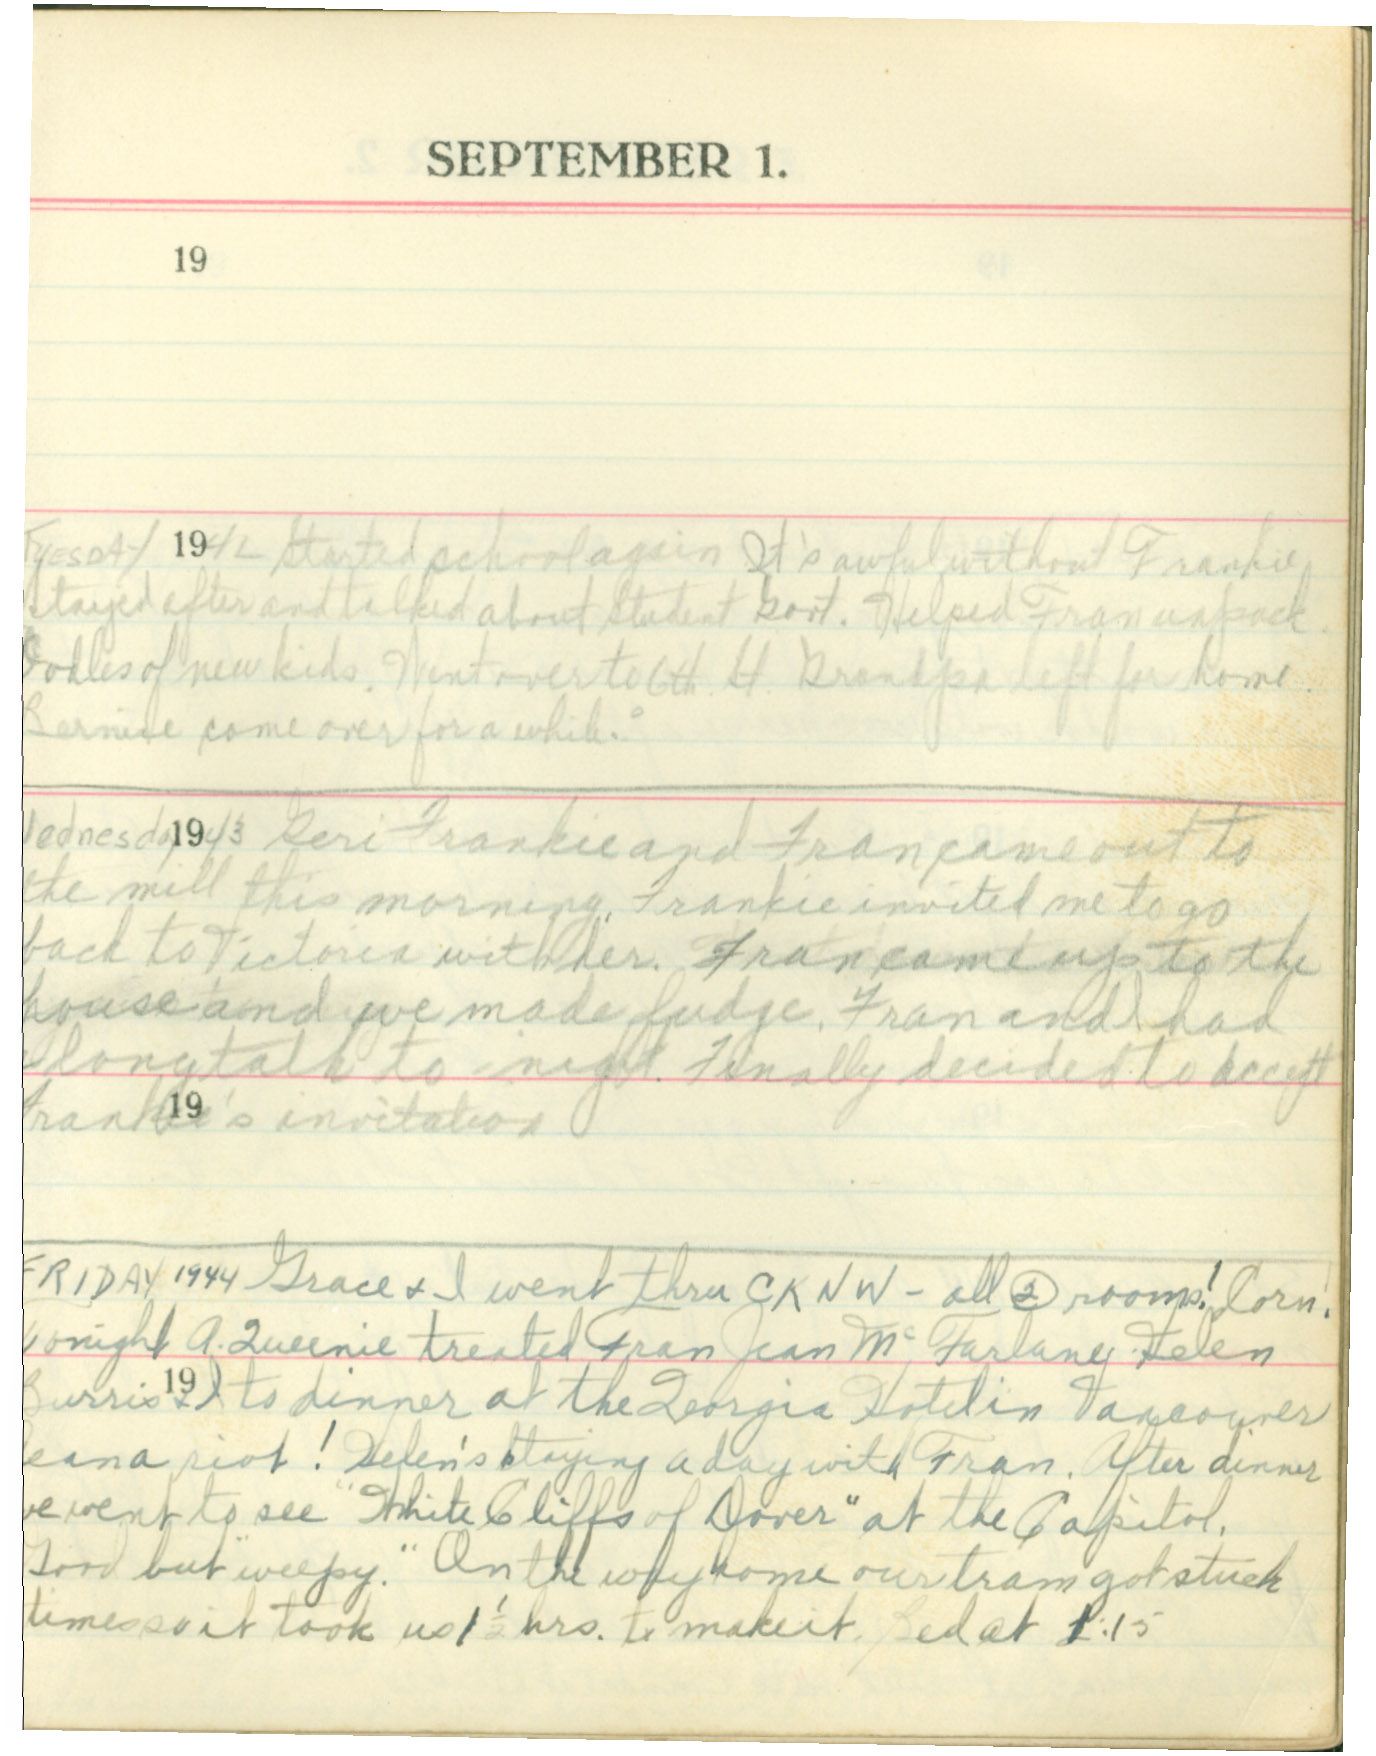 SEPTEMBER 1.
19
TUESDAY 1942 Started school again It's awful without Frankie
stayed after and talked about Student Govt. Helped Fran unpack.
Oodles of new kids. Went over to 6th St. Grandpa left for home.
Bernice come over for a while.
Wednesday 1943 Geri Frankie and Fran came out to
the mill this morning. Frankie invited me to go
back to Victoria with her. Fran came up to the
house and we made fudge. Fran and I had
a long talk to-night. Finally decided to accept
19
Frankie's invitation
FRIDAY 1944 Grace & I went thru CKNW - all 2 rooms! Corn!
Tonight A. Queenie treated Fran Jean McFarlane Helen
19
Burris & I to dinner at the Georgia Hotel in Vancouver
a riot! Helen's staying a day with Fran. After dinner
we went to see "White Cliffs of Dover" at the Capitol.
Good but "weepy." On the way home our tram got stuck
times so it took us 1½ hrs. to make it. Bed at 1:15